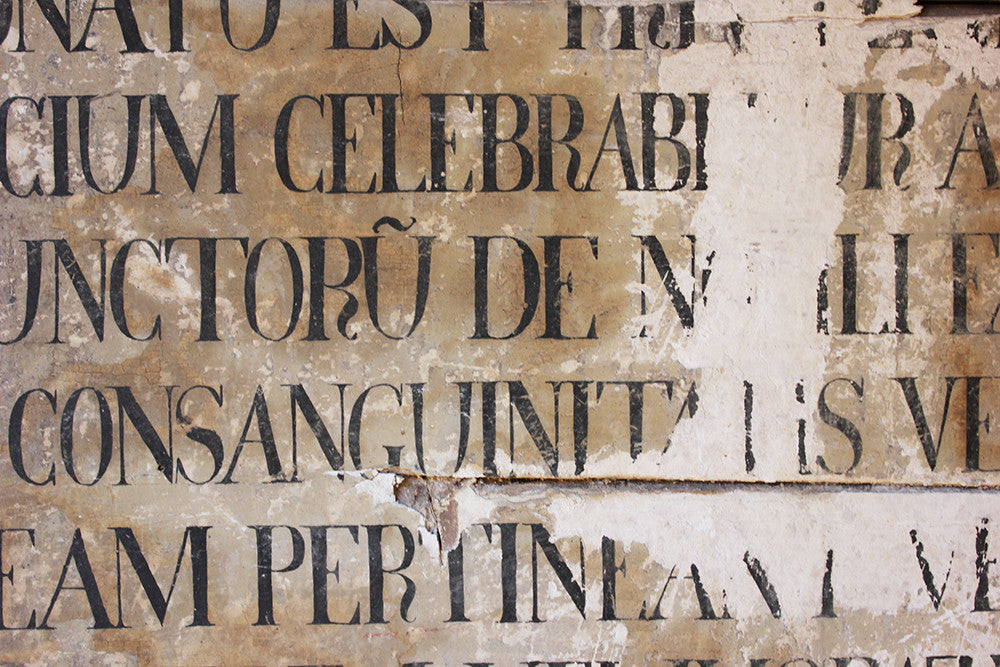 ONATO EST
CIUM CELEBRABITUR A
UNCTORŨ DE ILLI
CONSANGUINITATIS VE
EAM PERTINEANT VE